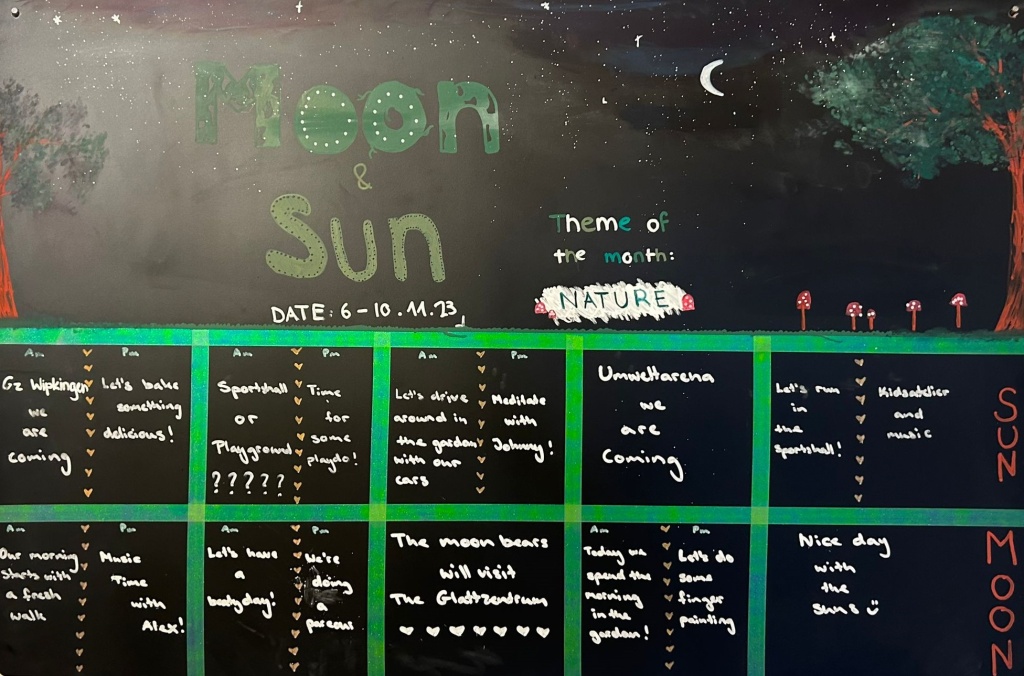 Moon
&
Sun
Theme of
the month:
NATURE
DATE: 6-10.11.23
Am
Pm
Gz Wipkingen
we
are
coming
Let's bake
something
delicious!
Am
Pm
Sportshall
or
Playground
?????
Time
for
some
playdo!
Am
Pm
Let's drive
around in
the garden
with our
cars
Meditate
with
Johnny!
Umweltarena
we
are
Coming
Let's run
in
the
Sportshall!
Kidsatelier
and
music
SUN
Am
Pm
Our morning
starts with
a fresh
walk
Music
Time
with
Alex!
Am
Pm
Let's have
a
day!
We're
doing
a
parcour
The moon bears
will visit
The Glattzentrum
Am
Pm
Today we
spend the
morning
in the
garden!
Let's do
some
finger
painting
Nice day
with
the
suns
MOON